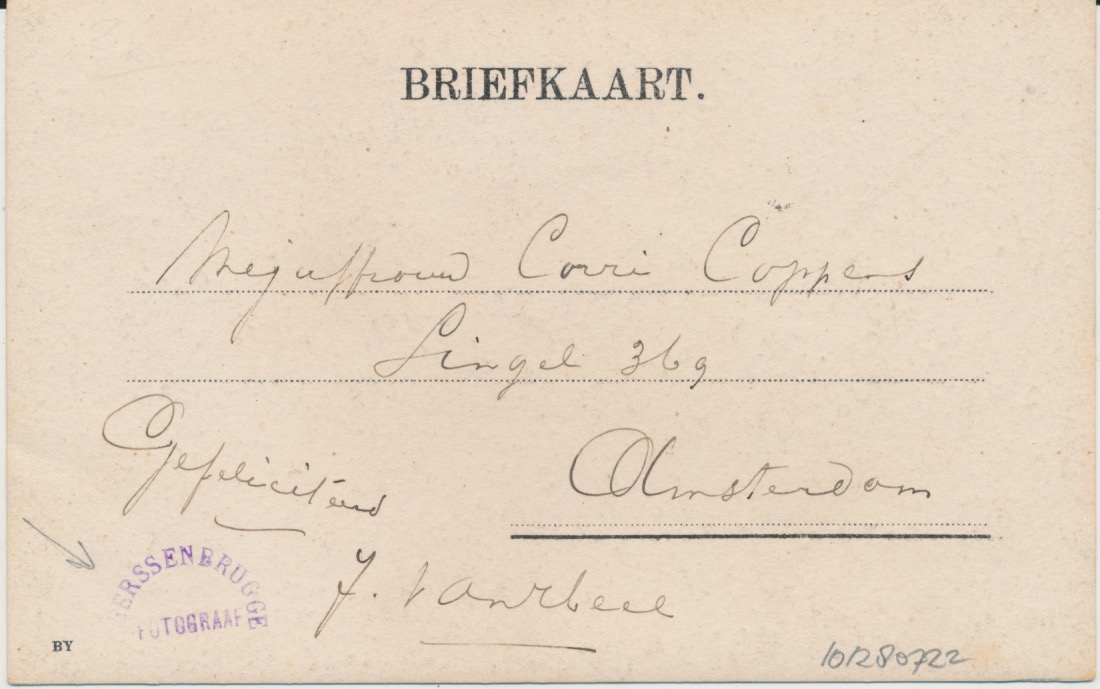 BRIEFKAART.
Mejuffrouw Corri Coppens
Singel 369
Amsterdam
Gefeliciteerd
ERSSENBRUGGE
FOTOGRAAF
J.
BY
101280722